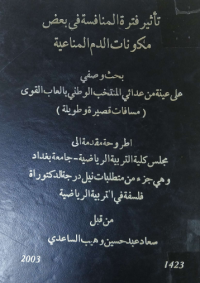 تأثير فترة المنافسة في بعض
مكونات الدم المناعية
بحث وصفي
على عينة من عدائي المنتخب الوطني بألعاب القوى
( مسافات قصيرة وطويلة )
اطروحة مقدمة الى
مجلس كلية التربية الرياضية - جامعة بغداد
وهي جزء من متطلبات نيل درجة الدكتوراة
فلسفة في التربية الرياضية
من قبل
سعاد عبد حسين وهيب الساعدي
2003 1423